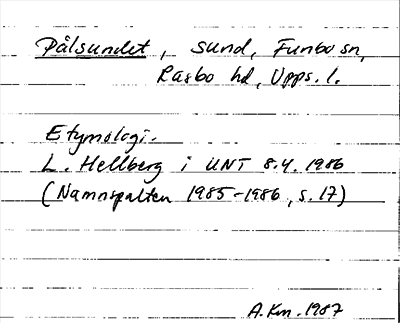 Pålsundet, sund, Funbo sn,
Rasbo hd, Upps. l.
Etymologi.
L. Hellberg i UNT 8.4. 1986
(Namnspalten 1985-1986, s. 17)
A.Km. 1987